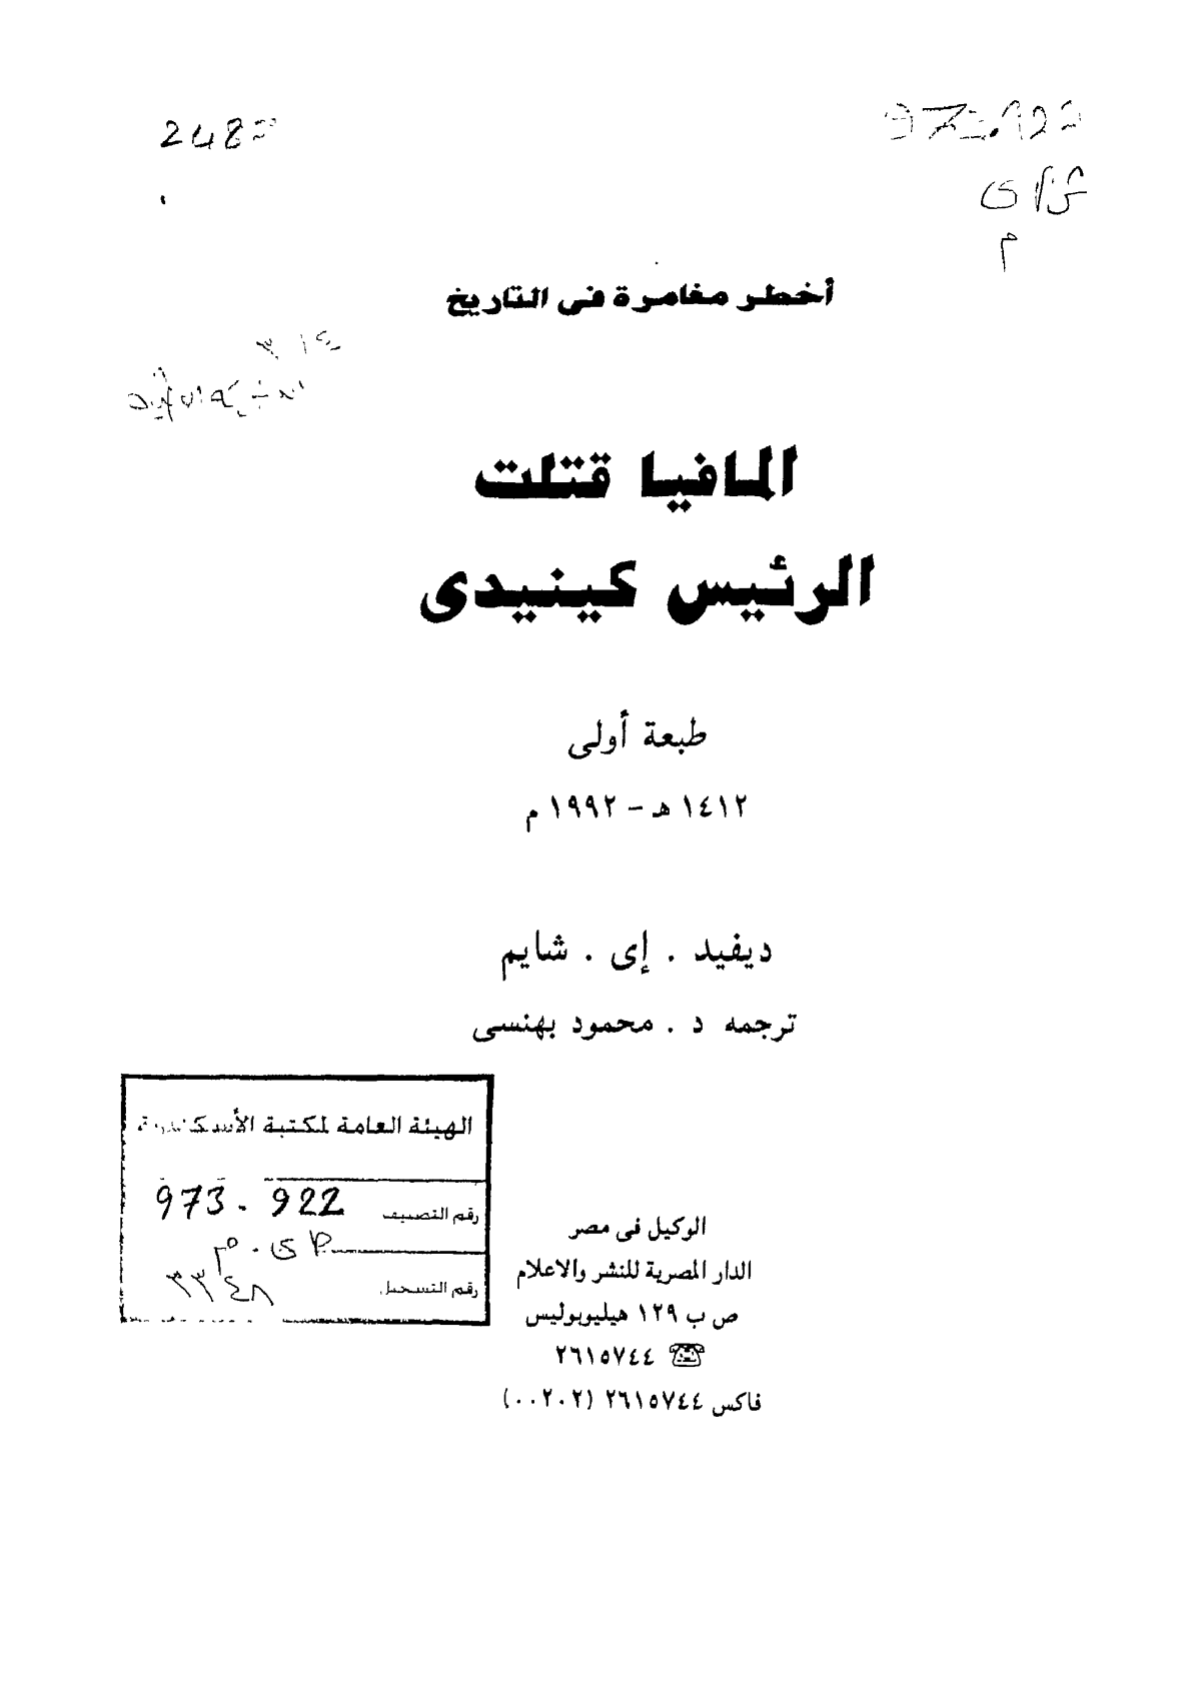 973.922
أخطر مغامرة فى التاريخ
المافيا قتلت
الرئيس كينيدى
طبعة أولى
١٤١٢ هـ – ١٩٩٢ م
ديفيد . إى . شايم
ترجمه د . محمود بهنسى
الهيئة العامة لمكتبة الأسكندرية
رقم التصنيف 973.922
رقم التسجيل ٣٣٤٨
الوكيل فى مصر
الدار المصرية للنشر والاعلام
ص ب ١٢٩ هيليوبوليس
☎ ٢٦١٥٧٤٤
فاكس ٢٦١٥٧٤٤ (٠٠٢٠٢)